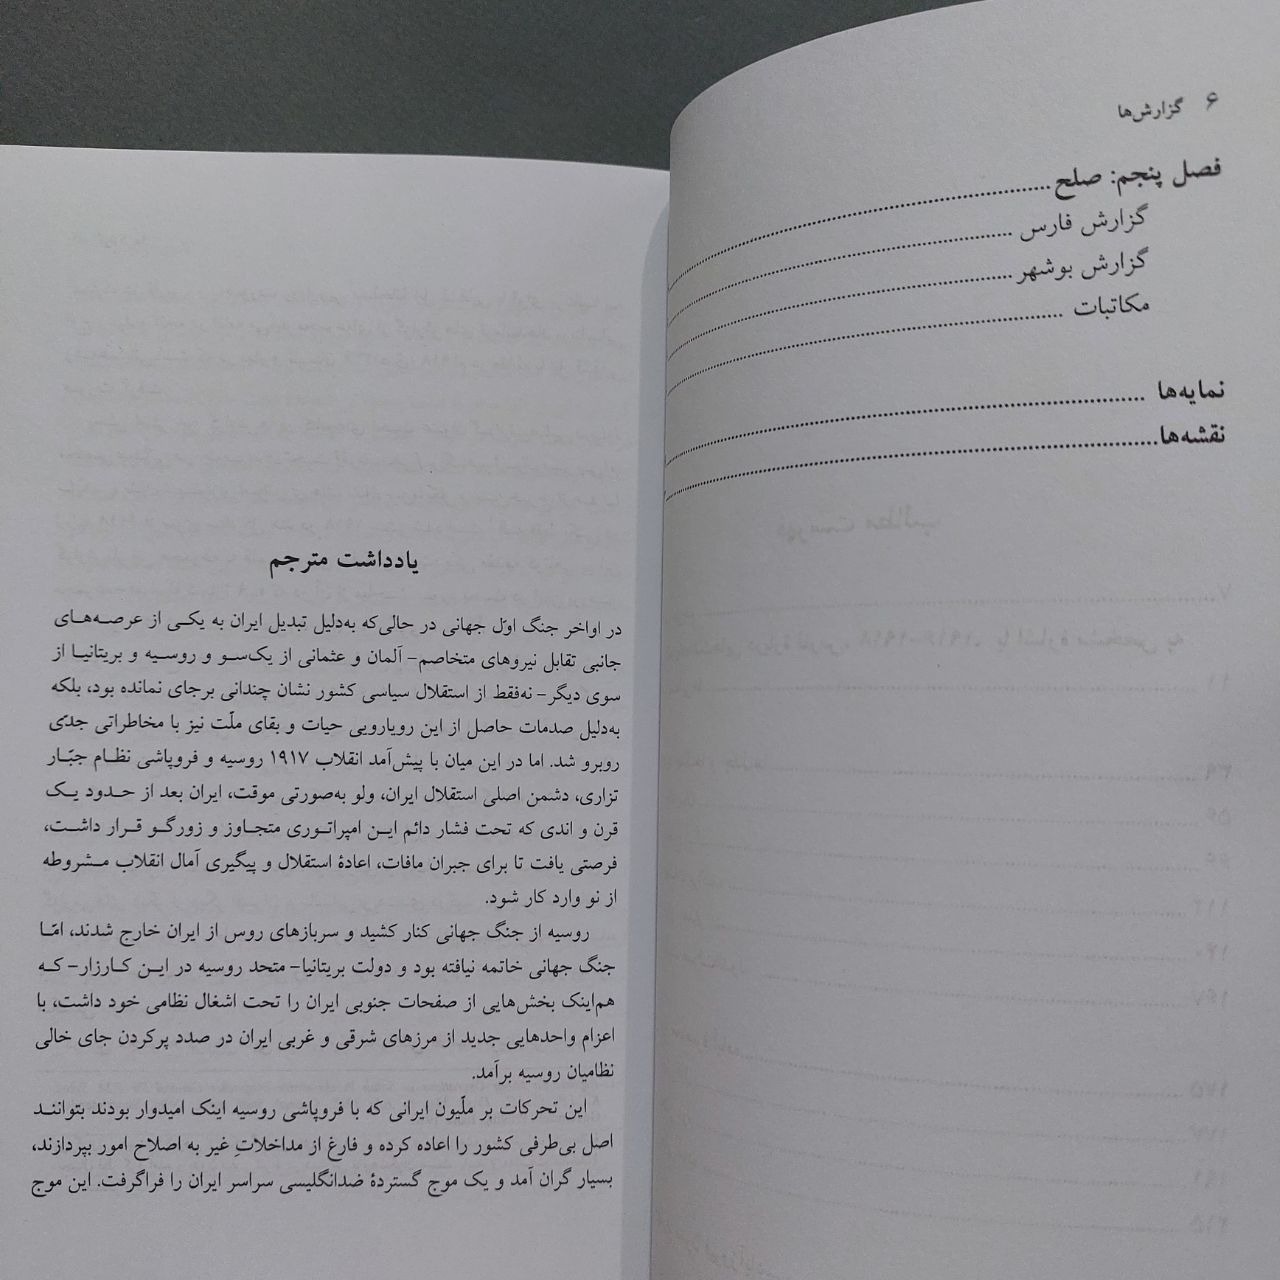 ۶ گزارش‌ها
فصل پنجم: صلح
گزارش فارس
گزارش بوشهر
مکاتبات
نمایه‌ها
نقشه‌ها
یادداشت مترجم
در اواخر جنگ اوّل جهانی در حالی‌که به‌دلیل تبدیل ایران به یکی از عرصه‌های
جانبی تقابل نیروهای متخاصم- آلمان و عثمانی از یک‌سو و روسیه و بریتانیا از
سوی دیگر- نه‌فقط از استقلال سیاسی کشور نشان چندانی برجای نمانده بود، بلکه
به‌دلیل صدمات حاصل از این رویارویی حیات و بقای ملّت نیز با مخاطراتی جدّی
روبرو شد. اما در این میان با پیش‌آمد انقلاب ۱۹۱۷ روسیه و فروپاشی نظام جبّار
تزاری، دشمن اصلی استقلال ایران، ولو به‌صورتی موقت، ایران بعد از حدود یک
قرن و اندی که تحت فشار دائم این امپراتوری متجاوز و زورگو قرار داشت،
فرصتی یافت تا برای جبران مافات، اعادهٔ استقلال و پیگیری آمال انقلاب مشروطه
از نو وارد کار شود.
روسیه از جنگ جهانی کنار کشید و سربازهای روس از ایران خارج شدند، امّا
جنگ جهانی خاتمه نیافته بود و دولت بریتانیا- متحد روسیه در این کارزار- که
هم‌اینک بخش‌هایی از صفحات جنوبی ایران را تحت اشغال نظامی خود داشت، با
اعزام واحدهایی جدید از مرزهای شرقی و غربی ایران در صدد پرکردن جای خالی
نظامیان روسیه برآمد.
این تحرکات بر ملّیون ایرانی که با فروپاشی روسیه اینک امیدوار بودند بتوانند
اصل بی‌طرفی کشور را اعاده کرده و فارغ از مداخلاتِ غیر به اصلاح امور بپردازند،
بسیار گران آمد و یک موج گستردهٔ ضدانگلیسی سراسر ایران را فراگرفت. این موج